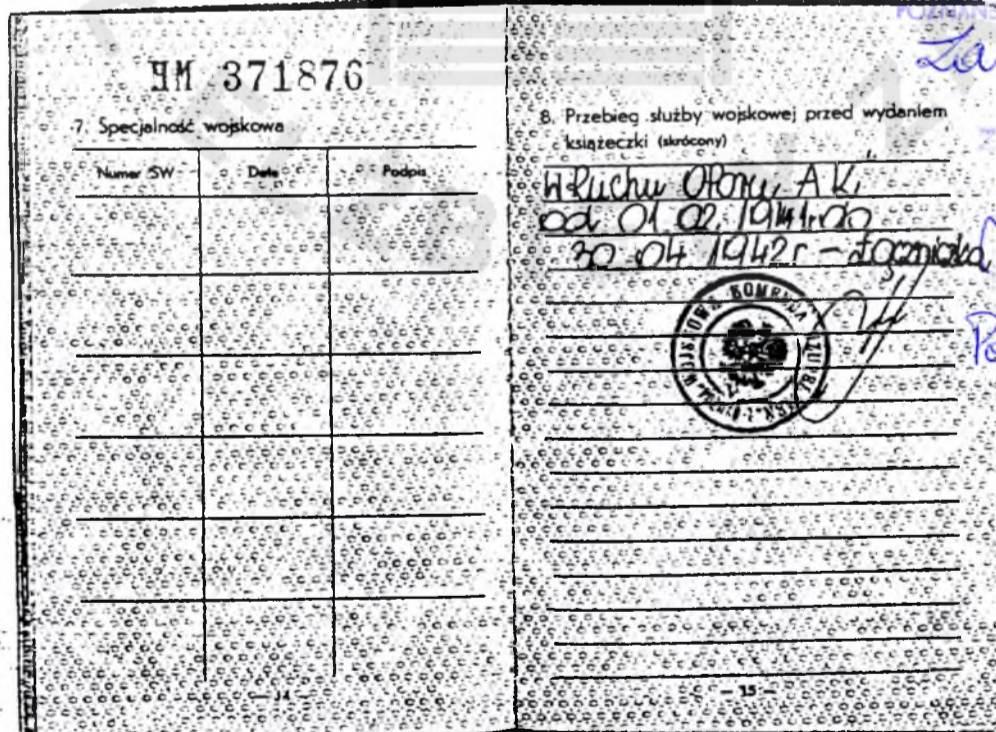 HM 371876
7. Specjalność wojskowa
Numer SW Data Podpis
— 14 —
8. Przebieg służby wojskowej przed wydaniem
książeczki (skrócony)
W Ruchu Oporu, A K,
od 01.02.1941r. do
30.04 1942r – Łączniczka
WOJSKOWA KOMENDA UZUPEŁNIEŃ
— 15 —
POZNAŃS
Za